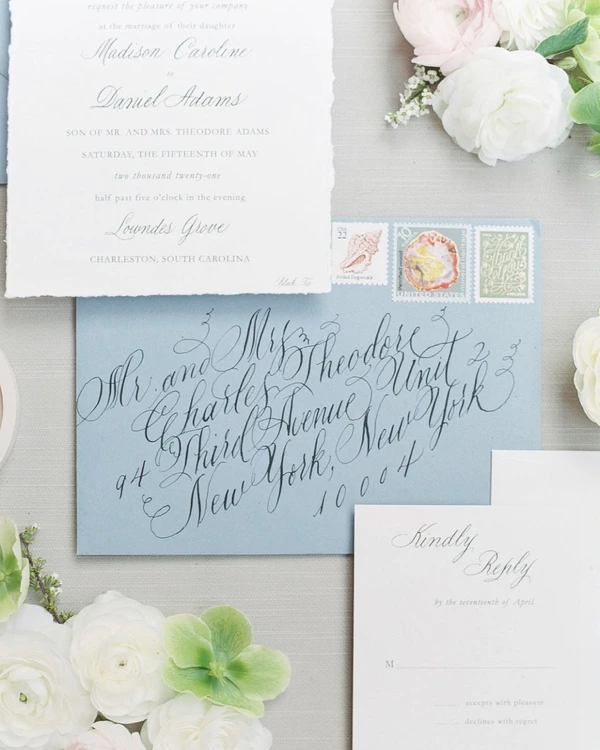 request the pleasure of your company
at the marriage of their daughter
Madison Caroline
to
Daniel Adams
SON OF MR. AND MRS. THEODORE ADAMS
SATURDAY, THE FIFTEENTH OF MAY
two thousand twenty-one
half past five o'clock in the evening
Lowndes Grove
CHARLESTON, SOUTH CAROLINA
Black Tie
USA
22
UNITED STATES
Mr. and Mrs. Theodore
Charles
94 Third Avenue Unit 2
New York, New York
10004
Kindly
Reply
by the seventeenth of April
M
accepts with pleasure
declines with regret